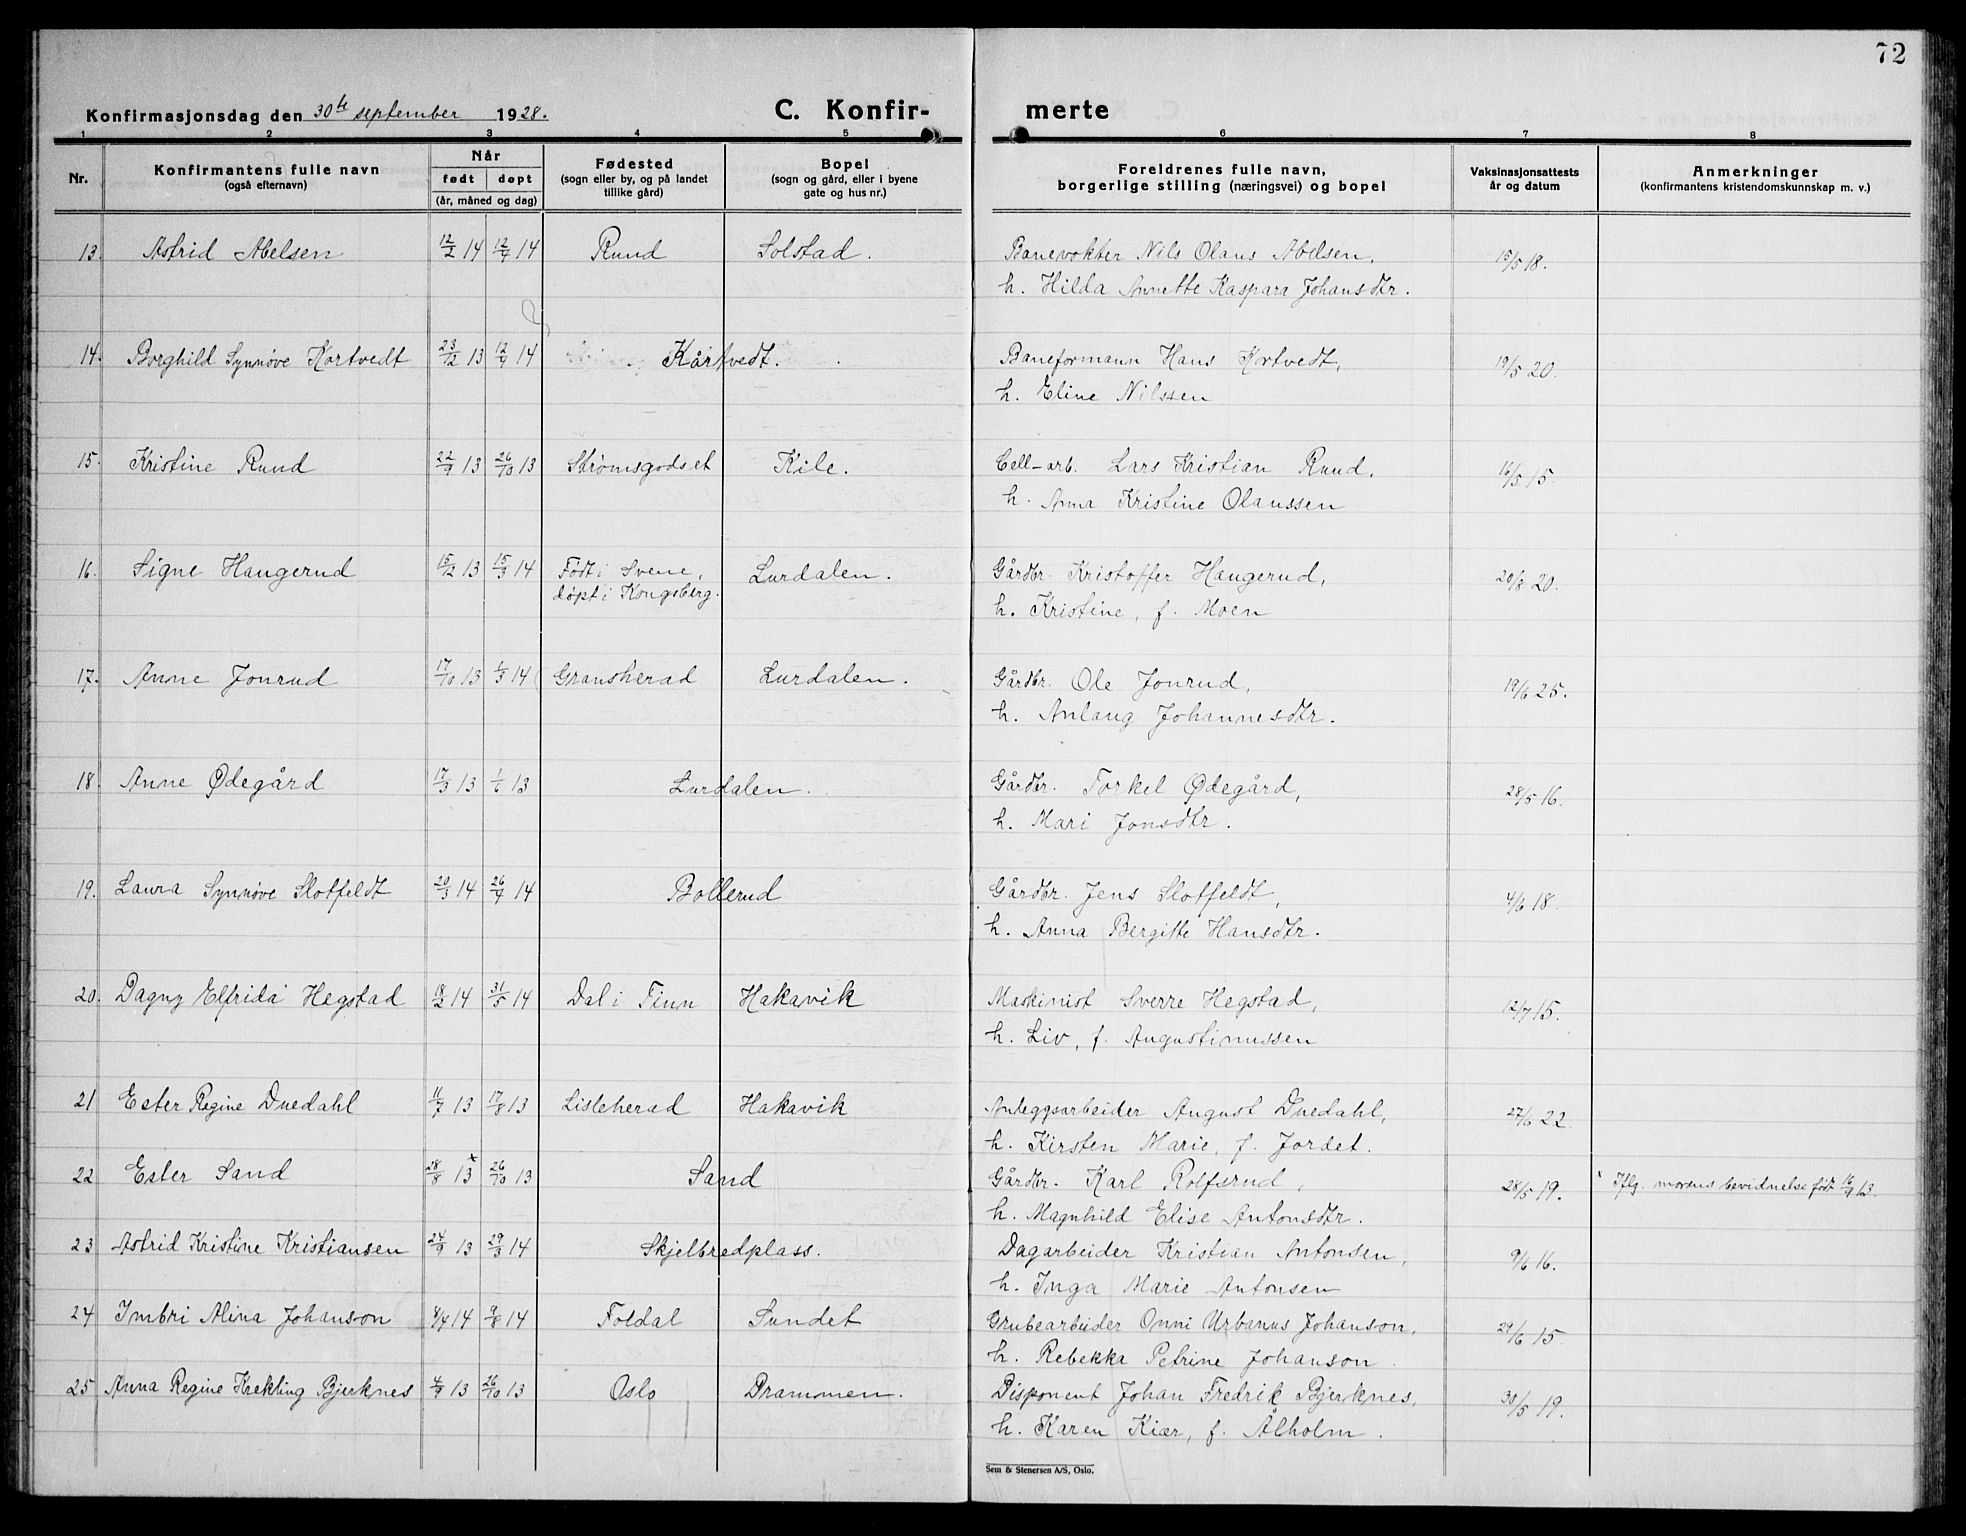 72
Konfirmasjonsdag den 30te september 1928. C. Konfir- merte
1 2 3 4 5 6 7 8
Nr. Konfirmantens fulle navn (også efternavn) Når født døpt (år, måned og dag) Fødested (sogn eller by, og på landet tillike gård) Bopel (sogn og gård, eller i byene gate og hus nr.) Foreldrenes fulle navn, borgerlige stilling (næringsvei) og bopel Vaksinasjonsattests år og datum Anmerkninger (konfirmantens kristendomskunnskap m. v.)
13. Astrid Abelsen 12/2 14 12/4 14 Ruud Solstad. Banevokter Nils Olaus Abelsen, 15/5 18.
h. Hilda Annette Kaspara Johansdtr.
14. Borghild Synnøve Kortvedt 23/12 13 12/4 14 Kårtvedt. Baneformann Hans Kortvedt, 19/5 20.
h. Eline Nilssen
15. Kristine Ruud 22/9 13 26/10 13 Strømsgodset Kile. Cell-arb. Lars Kristian Ruud, 16/5 15.
h. Anna Kristine Olaussen
16. Signe Haugerud 15/12 13 15/3 14 Født i Svene, Lurdalen. Gårdbr. Kristoffer Haugerud, 20/8 20.
døpt i Kongsberg. h. Kristine, f. Moen
17. Anne Jonrud 17/10 13 1/3 14 Gransherad Lurdalen. Gårdbr. Ole Jonrud, 19/6 25.
h. Anlaug Johannesdtr.
18. Anne Ødegård 17/3 13 1/6 13 Lurdalen. Gårdbr. Torkel Ødegård, 28/5 16.
h. Mari Jonsdtr.
19. Laura Synnøve Slotfeldt 20/3 14 26/4 14 Bollerud Gårdbr. Jens Slotfeldt, 4/6 18.
h. Anna Bergitte Hansdtr.
20. Dagny Elfrida Hegstad 18/2 14 31/5 14 Dal i Tinn Hakavik Maskinist Sverre Hegstad, 12/7 15.
h. Liv, f. Augustinussen
21 Ester Regine Duedahl 11/7 13 17/8 13 Lisleherad Hakavik Anleggsarbeider August Duedahl, 27/6 22.
h. Kirsten Marie, f. Jordet.
22 Ester Sand 28/8 13 x 26/10 13 Sand Gårdbr. Karl Rolfsrud, 28/5 19. x Iflg. morens bevidnelse født 16/9 13.
h. Magnhild Elise Antonsdtr.
23 Astrid Kristine Kristiansen 24/9 13 29/3 14 Skjelbredplass. Dagarbeider Kristian Antonsen, 9/6 16.
h. Inga Marie Antonsen
24 Imbri Alina Johanson 8/4 14 9/8 14 Foldal Sundet Grubearbeider Onni Urbanus Johanson, 29/6 15
h. Rebekka Petrine Johanson.
25 Anna Regine Krekling Bjerknes 4/9 13 26/10 13 Oslo Drammen. Disponent Johan Fredrik Bjerknes, 30/5 19.
h. Karen Kiær, f. Ålholm.
Sem & Stenersen A/S, Oslo.